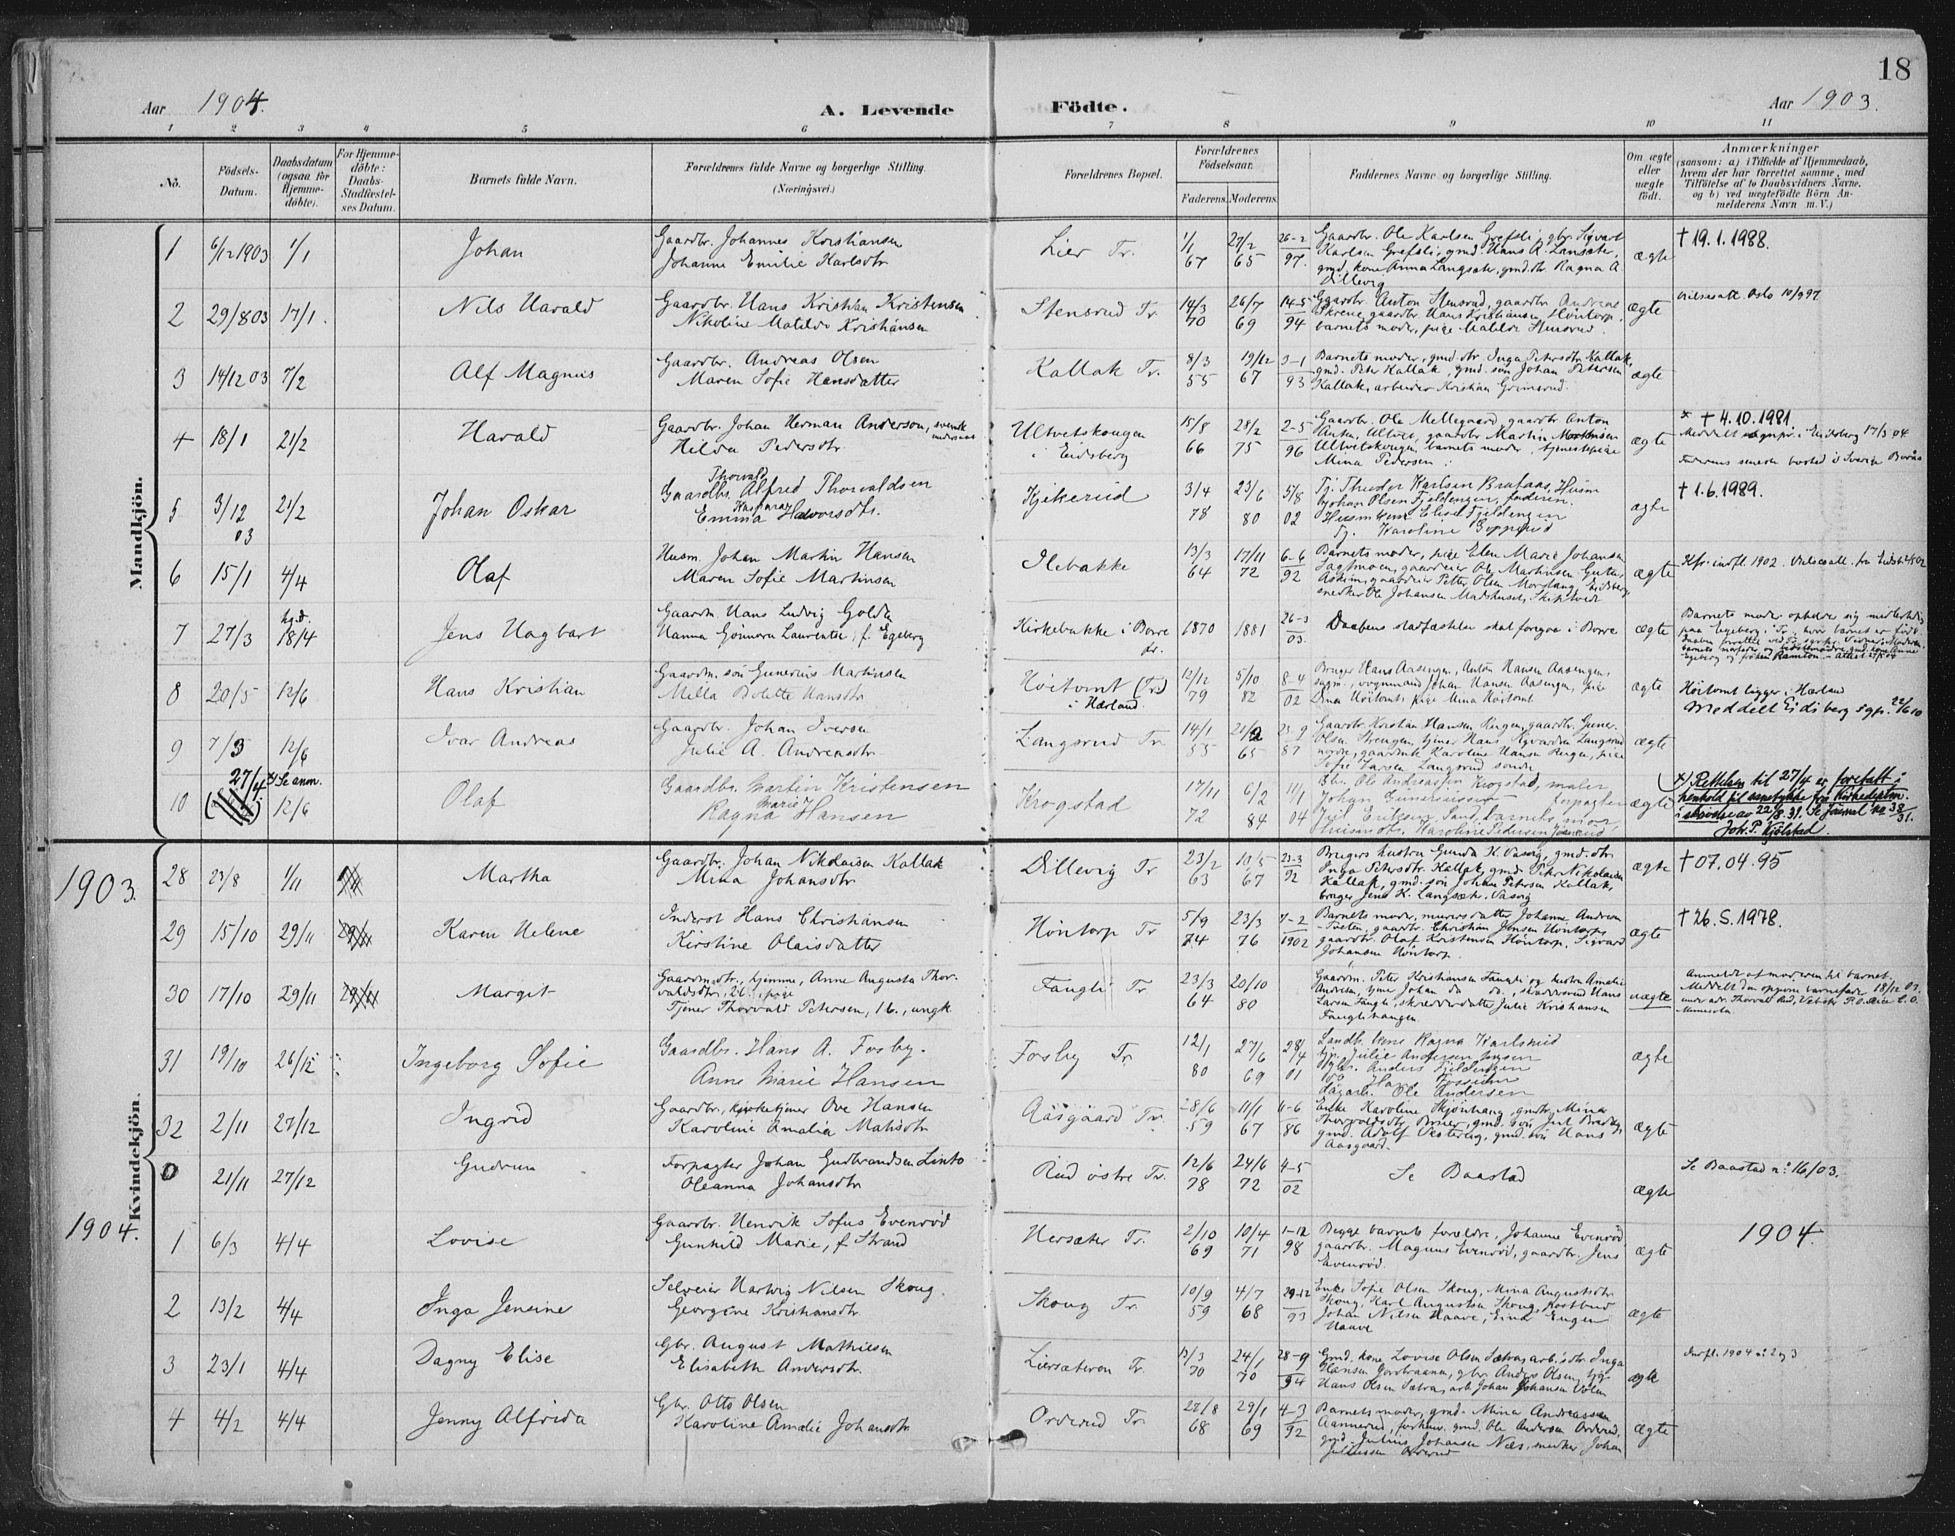 18
Aar 1904. A. Levende Födte. Aar 1903.
1 2 3 4 5 6 7 8 9 10 11
No. Födsels-Datum. Daabsdatum (ogsaa for Hjemme-döbte). For Hjemme-döbte: Daabs-Stadfæstel-ses Datum. Barnets fulde Navn. Forældrenes fulde Navne og borgerlige Stilling. (Næringsvei.) Forældrenes Bopæl. Forældrenes Födselsaar. Faderens. Moderens. Faddernes Navne og borgerlige Stilling. Om ægte eller uægte födt. Anmærkninger (saasom: a) i Tilfælde af Hjemmedaab, hvem der har forrettet samme, med Tilföielse af to Daabsvidners Navne, og b) ved uægtefödte Börn An-melderens Navn m. V.)
Mandkjön.
1 6/12 1903 1/1 Johan Gaardbr. Johannes Kristiansen
Johanne Emilie Karlsdtr. Lier Tr. 1/1 67 27/2 65 26-2 97. Gaardbr. Ole Karlsen Grefsli, gbr. Sigvart
Karlsen Grefsli, gmd. Hans A. Langsæter,
gmd. kone Anna Langsæter, gmd. dtr Ragna A
Dillevig ægte † 19.1.1988.
2 29/8 03 17/1. Nils Harald Gaardbr. Hans Kristian Kristensen
Nikoline Matilde Kristiansen Stensrud Tr. 14/3 70 26/7 69 14-5 94 Gaardbr Anton Stensrud, gaardbr Andreas
Skrene, gaardbr Hans Kristiansen Höntorp,
barnets moder, pige Matilde Stensrud. ægte Vielsesatt. Oslo 10/9 97
3 14/12 03 7/2 Alf Magnus Gaardbr. Andreas Olsen
Maren Sofie Hansdatter Kallak Tr. 8/3 55 19/12 67 3-1 93 Barnets moder, gmd. dtr. Inga Petersdtr Kallak,
gmd. Peter Kallak, gmd. sön Johan Petersen
Kallak, arbeider Kristian Grimsrud. ægte
4 18/1 21/2 Harald Gaardbr. Johan Herman Anderson, svensk undersaat
Hilda Pedersdtr Ultvetskougen
i Eidsberg 15/8 66 28/2 75 2-5 96 Gaardbr. Ole Mellegaard gaardbr Anton
Anton, Ultvet, gaardbr Martin Mortensen
Ultvetskougen, barnets moder, tjenestepige
Mina Pedersen ægte † 4.10.1981
Meddelt sognepr. i Eidsberg 17/3 04
Faderens seneste bosted i Sverige Borås
5 3/12 03 21/2 Johan Oskar Thorvald
Gaardbr. Alfred Thorvaldsen
Emma Halvorsdtr. Kjikerud 3/4 78 23/6 80 5/8 02 Tj. Theodor Karlsen Brataas, Husm
Johan Olsen Fjeldengen, faderen
Husmkone Elise Fjeldengen
Tj. Karoline Gopperud ægte † 1.6.1989.
6 15/1 4/4 Olaf Husm. Johan Martin Hansen
Maren Sofie Martinsen Ilebakke 13/3 64 17/11 72 6-6 92 Barnets moder, pige Elen Marie Johansen
Sagtmoen, gaardeier Ole Martinsen Guten,
Askim, gaardeier Petter Olsen Morstang, Eidsberg,
snedker Ole Johansen Madshuset, Skiptvedt ægte Kfr. indfl. 1902.
7 27/3 hj.d. 18/4 Jens Hagbart Gaardm. Hans Ludvig Golda
Hanna Gönnora Laurentze, f. Egeberg Kirkebakke i Borre 1870 1881 26-3 03. Daabens stadfæstelse skal foregaa i Borre ægte Barnets moder opholdt sig midlertidig
paa Egeberg i Tr., hvor barnet er födt.
8 20/5 12/6 Hans Kristian Gaardm. sön Gunerius Martinsen
Milla Bolette Hansdtr. Höitomt (Tr)
i Hærland 12/12 79 5/10 82 8-4 02 Bruger Hans Aasengen, Anton Hansen Aasengen,
vognmand Johan Hansen Aasengen, pige
Dina Höitomt, pige Mina Höitomt ægte Höitomt ligger i Hærland
Meddelt Eidsberg sgpr. 22/6 10
9 7/3 12/6 Ivar Andreas Gaardbr. Johan Iversen
Julie A. Andreasdtr. Langsrud Tr. 14/1 55 21/2 65 23-9 87 Gaardbr. Kristian Hansen Ringen, gaardbr. Gunerius
Olsen Strengen, tjener Hans Sigvardsen Langsrud
gaardmk Karoline Hansen Ringen, pige
Sofie Larsen Langsrud söndre ægte
10 27/4. x) Se anm. 12/6 Olaf Gaardbr. Martin Kristensen
Ragna Marie Hansen Krogstad 17/11 72 6/2 84 11/1 04 Gbr. Ole Andreassen Krogstad, maler
Johan Gunerius forpagter
Juel Eriksen Sand, barnets mor,
Karoline Pedersen ægte x) Rettelsen til 27/4 er foretatt i
henhold til samtykke fra Kirkedeptm.
i skrivelse av 22/8.31. Se Journal no 38/31.
Joh. P. Kjölstad
Kvindekjön.
1903. 28 23/8 1/11 Martha Gaardbr. Johan Nikolaisen Kallak
Mina Johansdtr Dillevig Tr 23/2 63 10/5 67 23-3 92 Brugers hustru Gunda K. Vasvig, gmd. dtr.
Inga Petersdtr Kallak, gmd. Petr Nikolaisen
Kallak, gmd. sön Johan Petersen Kallak,
bruger Jens K. Langsæter, Vasvig ægte † 07.04.95
29 15/10 29/11 Karen Helene Inderst Hans Christiansen
Kirstine Olaisdatter Höntorp Tr 5/9 74 23/3 76 7-2 1902 Barnets moder, murersdatter Johanne Andrea
Tveten, gaardbr. Christian Jensen Höntorp,
gaardbr. Olaf Kristensen Höntorp, Sigvard
Johansen Höntorp. ægte † 26.5.1978.
30 17/10 29/11 Margit Gaardm.dtr., hjemme, Anne Augusta Thor-
valdsdtr, pige
Tjener Thorvald Petersen, 16., ungk. Fangli Tr. 23/3 64 20/10 80 Gaardm. Peter Kristiansen Fangli og hustru Amalie
Andersen, tjener Johan do do., skrædersvend Hans
Larsen Fangli, skrædderdatter Julie Kristiansen
Fanglihaugen. uægte Anmeldt af moderen til barnet.
Meddelt den opgivne barnefader 18/12 03.
Minnesota.
31 19/10 26/12 Ingeborg Sofie Gaardbr. Hans A. Fosby.
Anne Marie Hansen Fosby Tr. 12/1 80 27/6 69 28/4 01 Landh. kone Ragna Karlsrud
Julie Andersen
Gbr. Anders Fjeldengen
do Hans Fossum
Dagarb. Ole Andersen ægte
32 2/11 27/12 Ingrid Gaardbr., kirketjener Ove Hansen
Karoline Amalia Matisdtr Aasgaard Tr. 28/6 59 11/1 67 4-6 86 Enke Karoline Skjönhaug, gmdtr. Mina
Thorvaldsdtr Brener, gmd. sön Juel Bradtz,
gmd. Adolf Vestereng, gmd. sön Hans
Aasgaard. ægte
0 21/11 27/12 Gudrun Forpagter Johan Gudbrandsen Linto
Oleanna Johansdtr Rud östre Tr. 12/6 78 24/6 72 4-5 02 Se Baastad ægte Se Baastad no 16/03.
1904. 1 6/3 4/4 Lovise Gaardbr. Henrik Sofus Evenröd
Gunhild Marie, f. Strand Hersæter Tr. 2/10 69 10/4 71 1-12 98 Begge barnets forældre, Johanne Evenröd
gaardbr. Magnus Evenröd, gaardbr. Jens
Evenröd. ægte 1904.
2 13/2 4/4 Inga Jensine Selveier Hartvig Nilsen Skoug.
Georgine Kristiansdtr. Skoug Tr. 10/9 59 4/7 68 29-12 93 Enke Sofie Olsen Skoug, Mina Augustsdtr
Skoug, Karl Augustsen Skoug, Kostbud
Johan Nilsen Haave, Einar Engen
Haave ægte
3 23/1 4/4 Dagny Elise Gbr. August Mathisen
Elisabeth Andersdtr. Liersæteren Tr. 13/3 70 24/1 70 28-9 94 Gmd. kone Lovise Olsen Sætra, arb.'s dtr Inga
Hansen Jordbraaen, gbr. Anders Olsen,
Hans Olsen Sætra, arb. Johan Johansen Volen ægte Indfl. 1904 n: 2 og 3
4 4/2 4/4 Jenny Alfrida Gbr. Otto Olsen
Karoline Amalie Johansdtr Orderud Tr. 27/8 68 29/1 69 4-3 92 Barnets moder, gmd. Mina Andreassen
Aannerud, gmd. Ole Andersen Orderud,
gmd. Julius Johansen Næs, snedker Johan
Juliussen Orderud ægte